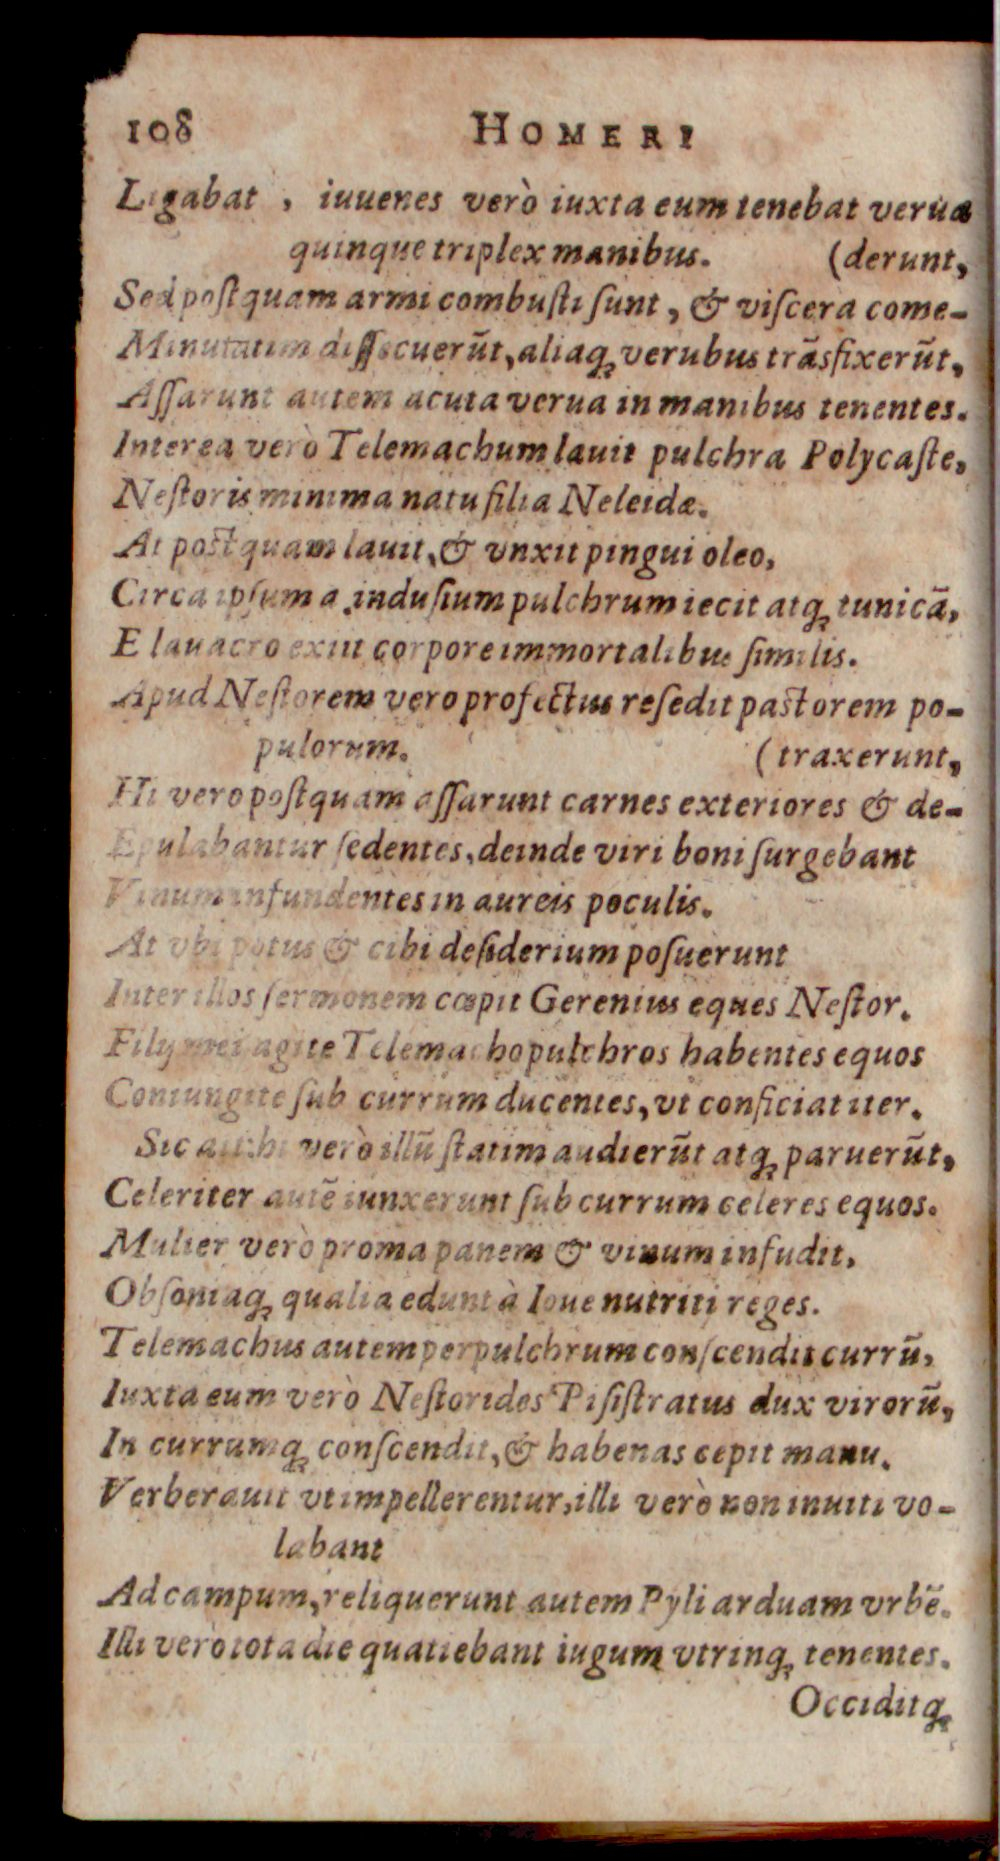 108 HOMERI
Ligabat , iuuenes verò iuxta eum tenebat verua
quinque triplex manibus. (derunt,
Sed postquam armi combusti sunt, & viscera come-
Minutatim dissecuerūt, aliaq; verubus trāsfixerūt,
Assarunt autem acuta verua in manibus tenentes.
Interea verò Telemachum lauit pulchra Polycaste,
Nestoris minima natu filia Neleidæ.
At postquam lauit, & vnxit pingui oleo,
Circa ipsum a indusium pulchrum iecit atq; tunicā,
E lauacro exiit corpore immortalibus similis.
Apud Nestorem vero profectus resedit pastorem po-
pulorum. (traxerunt,
Hi vero postquam assarunt carnes exteriores & de-
Epulabantur sedentes, deinde viri boni surgebant
Vinum infundentes in aureis poculis.
At vbi potus & cibi desiderium posuerunt
Inter illos sermonem cœpit Gerenius eques Nestor.
Filij mei agite Telemacho pulchros habentes equos
Coniungite sub currum ducentes, vt conficiat iter.
Sic ait: hi verò illū statim audierūt atq; paruerūt,
Celeriter autē iunxerunt sub currum celeres equos.
Mulier verò proma panem & vinum infudit,
Obsoniaq; qualia edunt à Ioue nutriti reges.
Telemachus autem perpulchrum conscendit currū,
Iuxta eum verò Nestorides Pisistratus dux virorū,
In currumq; conscendit, & habenas cepit manu.
Verberauit vt impellerentur, illi verò non inuiti vo-
labant
Ad campum, reliquerunt autem Pyli arduam vrbē.
Illi verò tota die quatiebant iugum vtrinq; tenentes.
Occiditq;